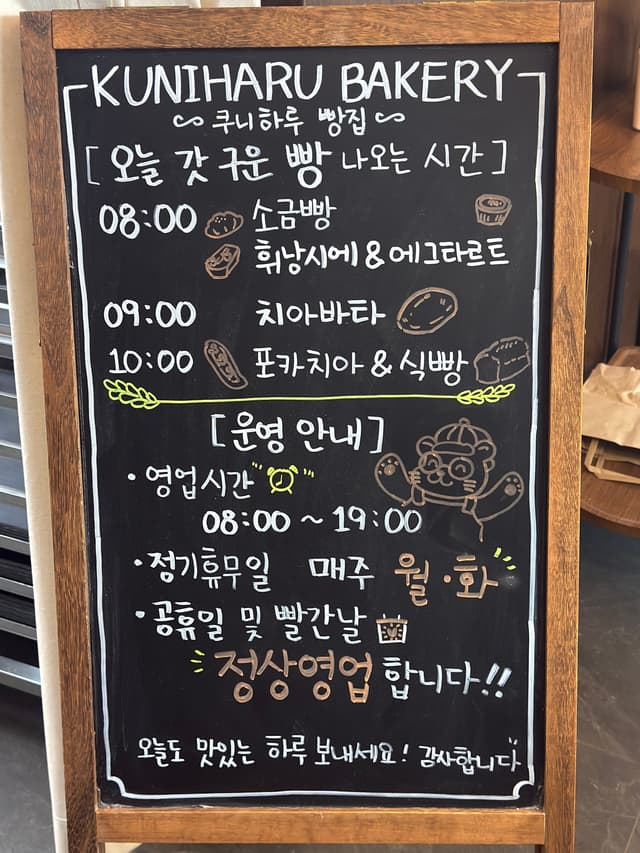 KUNIHARU BAKERY
~ 쿠니하루 빵집 ~
[ 오늘 갓 구운 빵 나오는 시간 ]
08:00 소금빵
휘낭시에 & 에그타르트
09:00 치아바타
10:00 포카치아 & 식빵
[ 운영 안내 ]
· 영업시간
08:00 ~ 19:00
· 정기휴무일 매주 월·화
· 공휴일 및 빨간날
정상영업합니다!!
오늘도 맛있는 하루 보내세요! 감사합니다